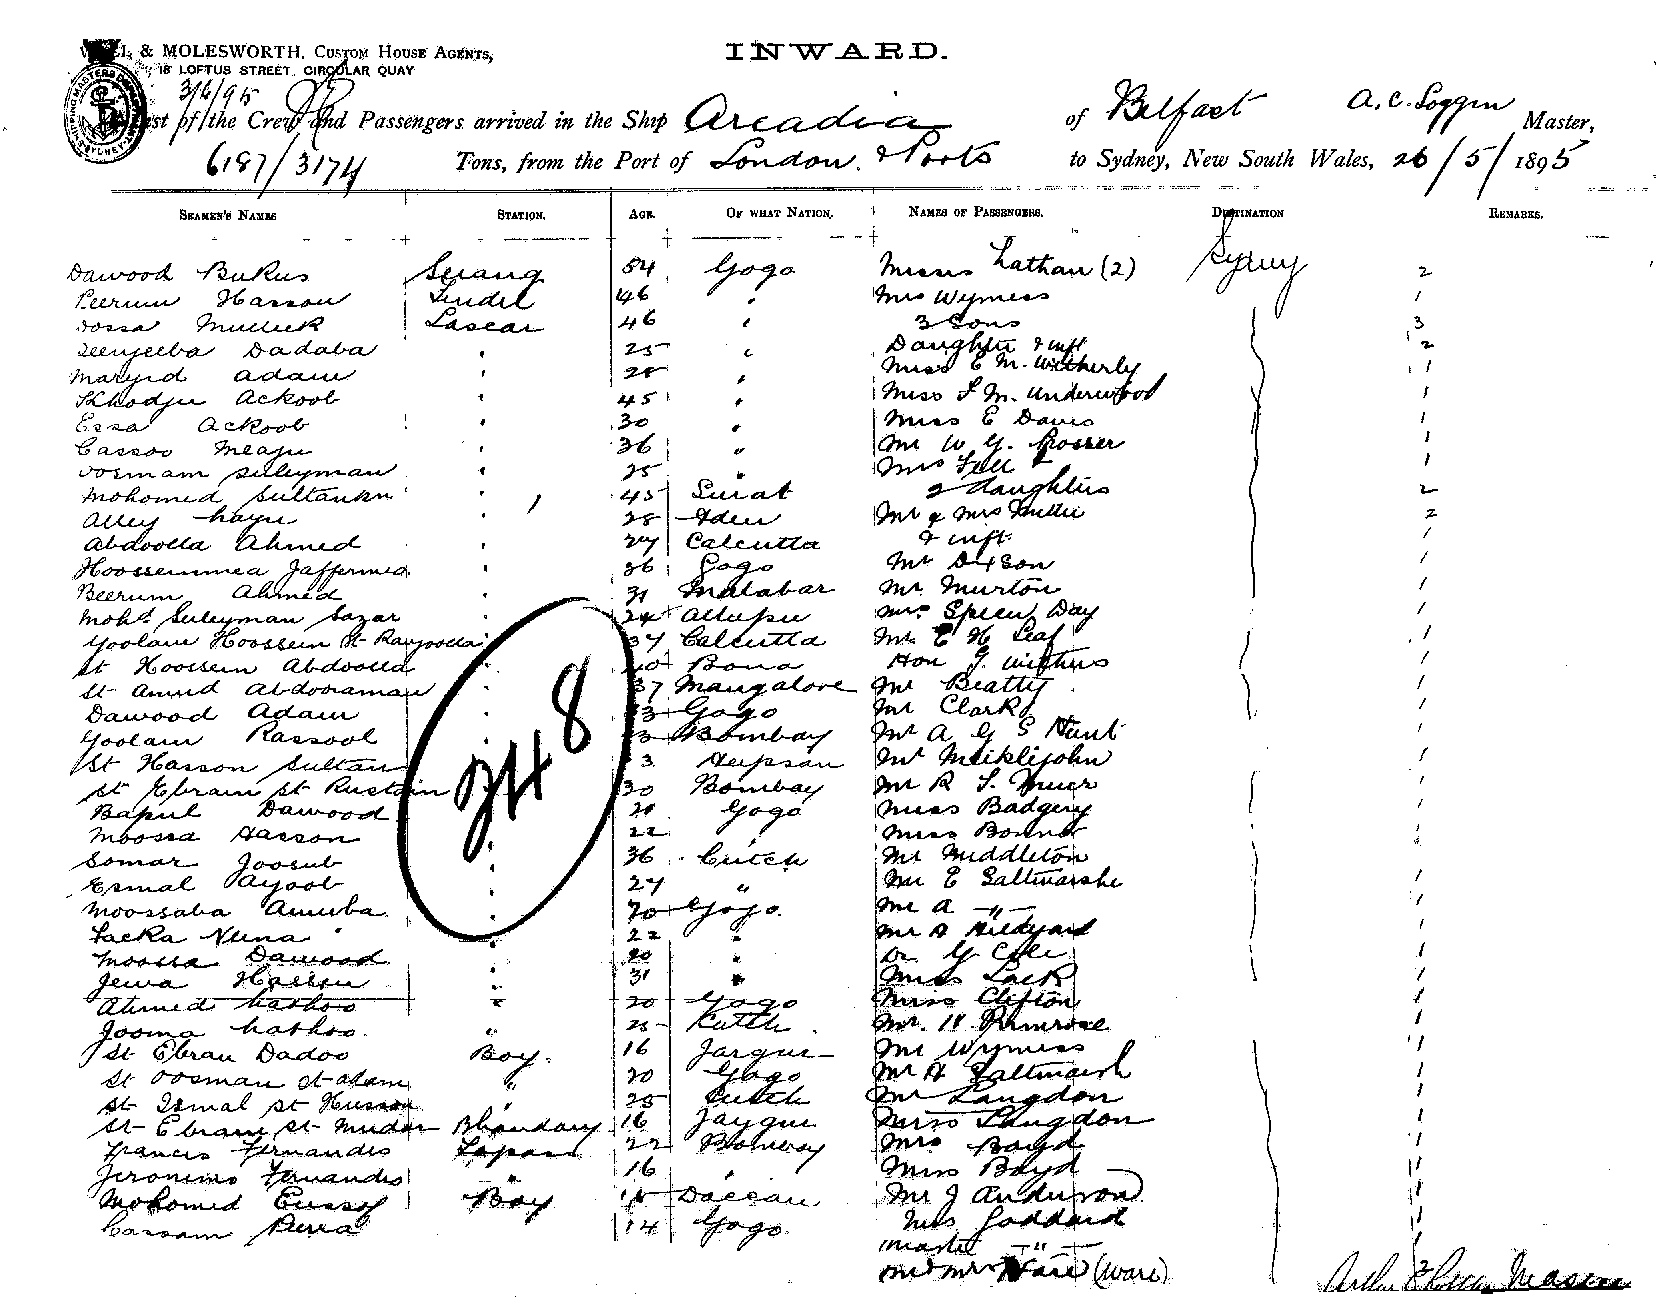 & MOLESWORTH, Custom House Agents,
18 LOFTUS STREET, CIRCULAR QUAY
INWARD.
3/6/95
List of the Crew and Passengers arrived in the Ship Arcadia of Belfast A. C. Loggin Master,
6187/3174 Tons, from the Port of London & Ports to Sydney, New South Wales, 26/5/1895
Seamen's Names Station. Age. Of what Nation. Names of Passengers. Destination Remarks.
Dawood Bukus Serang 54 Gogo Misses Lathan (2) Sydney 2
Peerun Hasson Tindel 46 " Mrs Wymess 1
Dossa Mullick Lascar 46 " 3 Sons 3
Dadaba " 25 " Daughter & inft 2
Marjid Adam " 25 " Miss E M. Witherly 1
Khodju Ackoob " 45 " Miss F M. Underwood 1
Essa Ackoob " 30 " Miss E Davis 1
Cassoo Meaju " 36 " Mr W G. Prosser 1
Oosmam Suleyman " 25 " Mrs Fell & 1
Mohomed Sultankn " 45 Surat 2 daughters 2
Alley hayu " 28 Aden Mr & Mrs 2
Abdoolla Ahmed " 27 Calcutta & inft 1
Hoosseinmea Jaffermea " 36 Gogo Mr Dixson 1
Beerum Ahmed " 31 Malabar Mr Murton 1
Mohd Suleyman " Mrs Spicer Day 1
Goolam Hoossein St 37 Calcutta Mr E H Leaf 1
St Hoossein Abdoolla Hon J. Withers 1
St Amud Abdoraman 37 Mangalore Mr Beatty 1
Dawood Adam Gogo Mr Clark 1
Goolam Rassool Bombay Mr A G S Hunt 1
St Hasson Sultan Mr Meiklejohn 1
St Ebram St Rustain 30 Bombay Mr R S. 1
Bapul Dawood 20 Gogo Miss Badgery 1
Moossa Hasson 22 " Miss Bonner 1
Somar Joosub 36 Cutch Mr Middleton 1
Esmal Ayoob 27 " Mr E Saltmarshe 1
Moossaba Amuba 20 Gogo Mr A -"- 1
248
Lacka Nuna " 22 " Mr A Hildyard 1
Moossa Dawood " 20 " Dr G Cole 1
Jewa Hassen " 31 " Miss Lack 1
Ahmed hathoo " 20 Gogo Miss Clifton 1
Jooma hathoo " 25 Kutch Mr. H Primrose 1
St Ebran Dadoo Boy. 16 Mr Wymess 1
St Oosman St Adam " 20 Gogo Mr A Saltmarsh 1
St Ismal St Husson " 25 Cutch Mr Langdon 1
St Ebram St Bhandary 16 Jaygur Miss Langdon 1
Francis Fernandes Topass 22 Bombay Mrs Boyd 1
Jeronimo Fernandes " 16 " Miss Boyd 1
Mohomed Eussof Boy Daccan Mr J Anderson 1
Cassam Peera 14 Gogo Mrs Goddard 1
Master -"- 1
Mr & Mrs Ware (Ware) 2